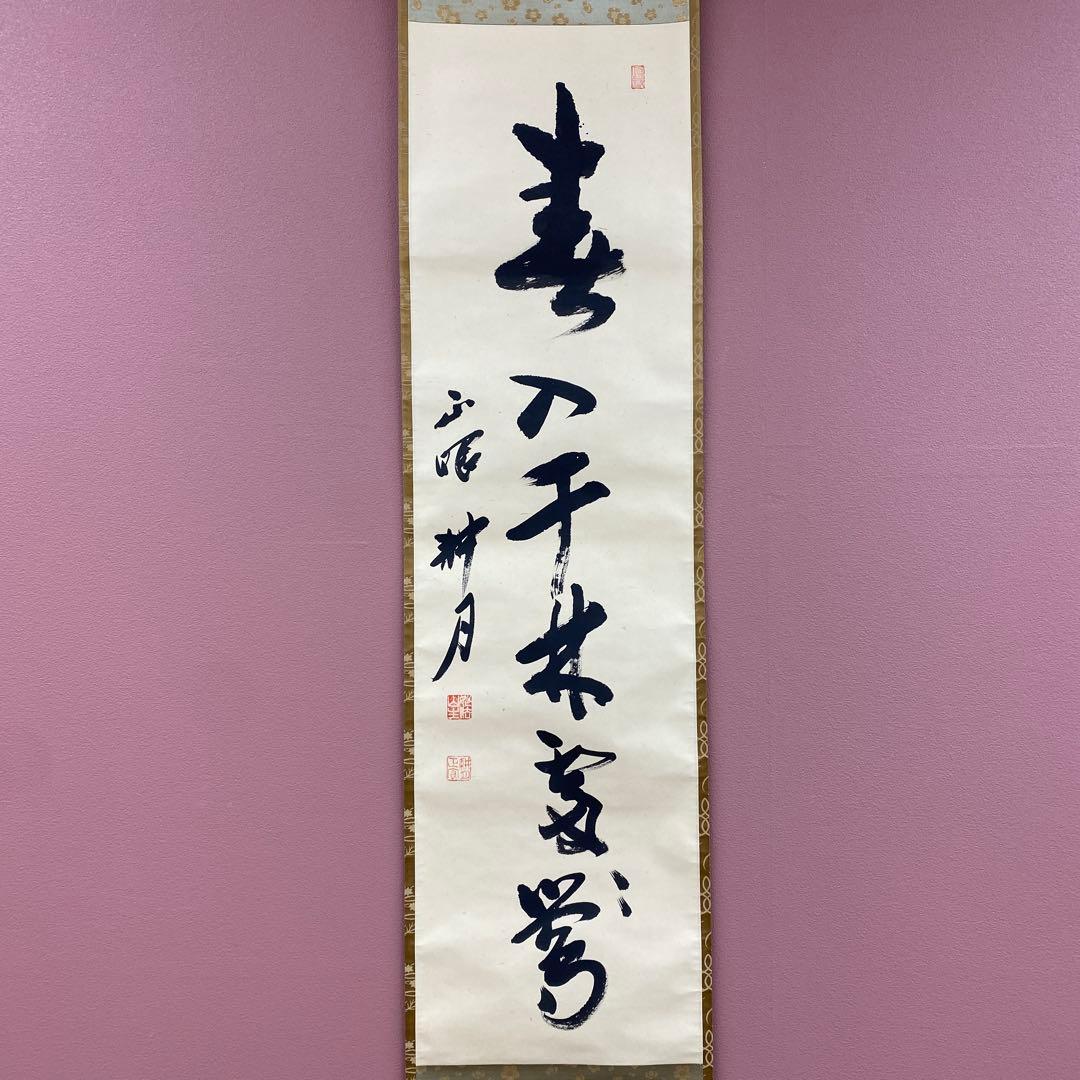 春入千林處〻鶯
正眼 耕月